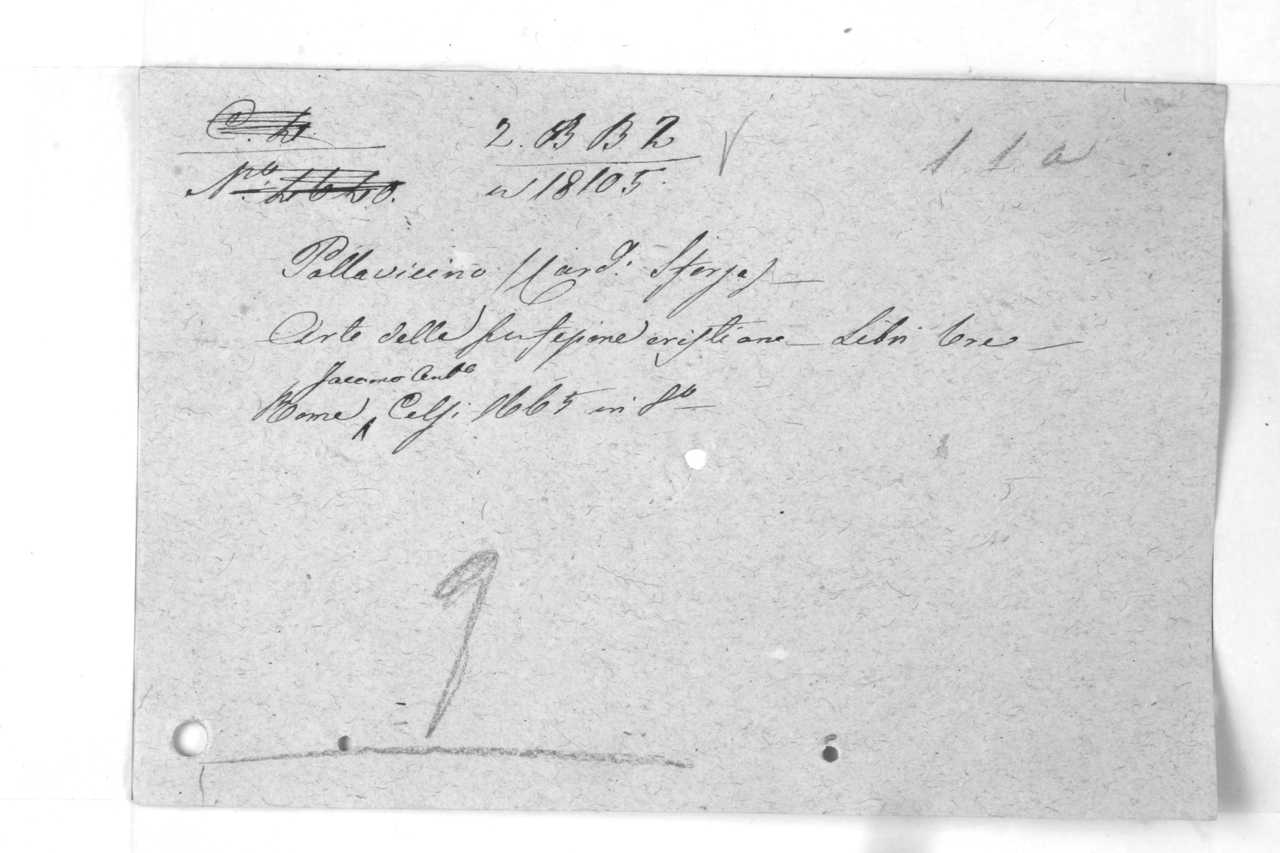 2. B B 2
1.1.a
Nro
n 18105.
Pallavicino (Card. Sforza) —
Arte della perfezione cristiana — Libri tre —
Jacomo Ant.o
Roma Celsi 1665 in 8o —
9